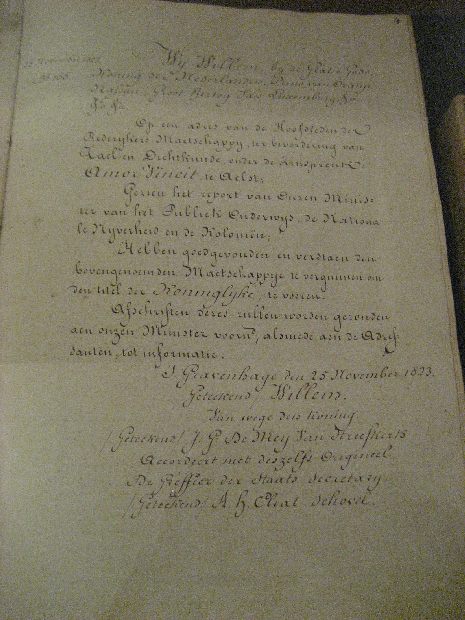 4
25 November 1823
No. 166
Wy Willem, by de Gratie Gods,
Koning der Nederlanden, Prins van Oranje
Nassau, Groot Hertog van Luxemburg &a
&a &a
Op een adres van de Hoofdleden der
Rederykers Maetschappy, ter bevordering van
Tael en Dichtkunde, onder de kenspreuk
Amor Vincit te Aelst.
Gezien het report van Onzen Minis-
ter van het Publiek Onderwijs, de Nationa
le Nyverheid en de Kolonien;
Hebben goedgevonden en verstaen den
bovengenoemden Maetschappye te vergunnen om
den titel der Koninglyke, te voeren.
Afschriften dezes zullen worden gezonden
aen onzen Minister voorn.d, alsmede aen de Adres-
santen, tot informatie.
S Gravenhage den 25 November 1823.
Geteekend Willem.
Van wege den Koning
(Geteekend) J. G. De Mey Van Streefkerk
Accordeert met deszelfs Origineel
De Greffier der Staats Secretary
(Geteekend) A. h.